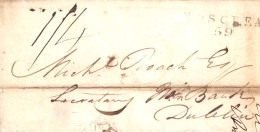 1/4
SCREA
59
Mich^l Roach Esq^r
Secretary Bank
Dublin